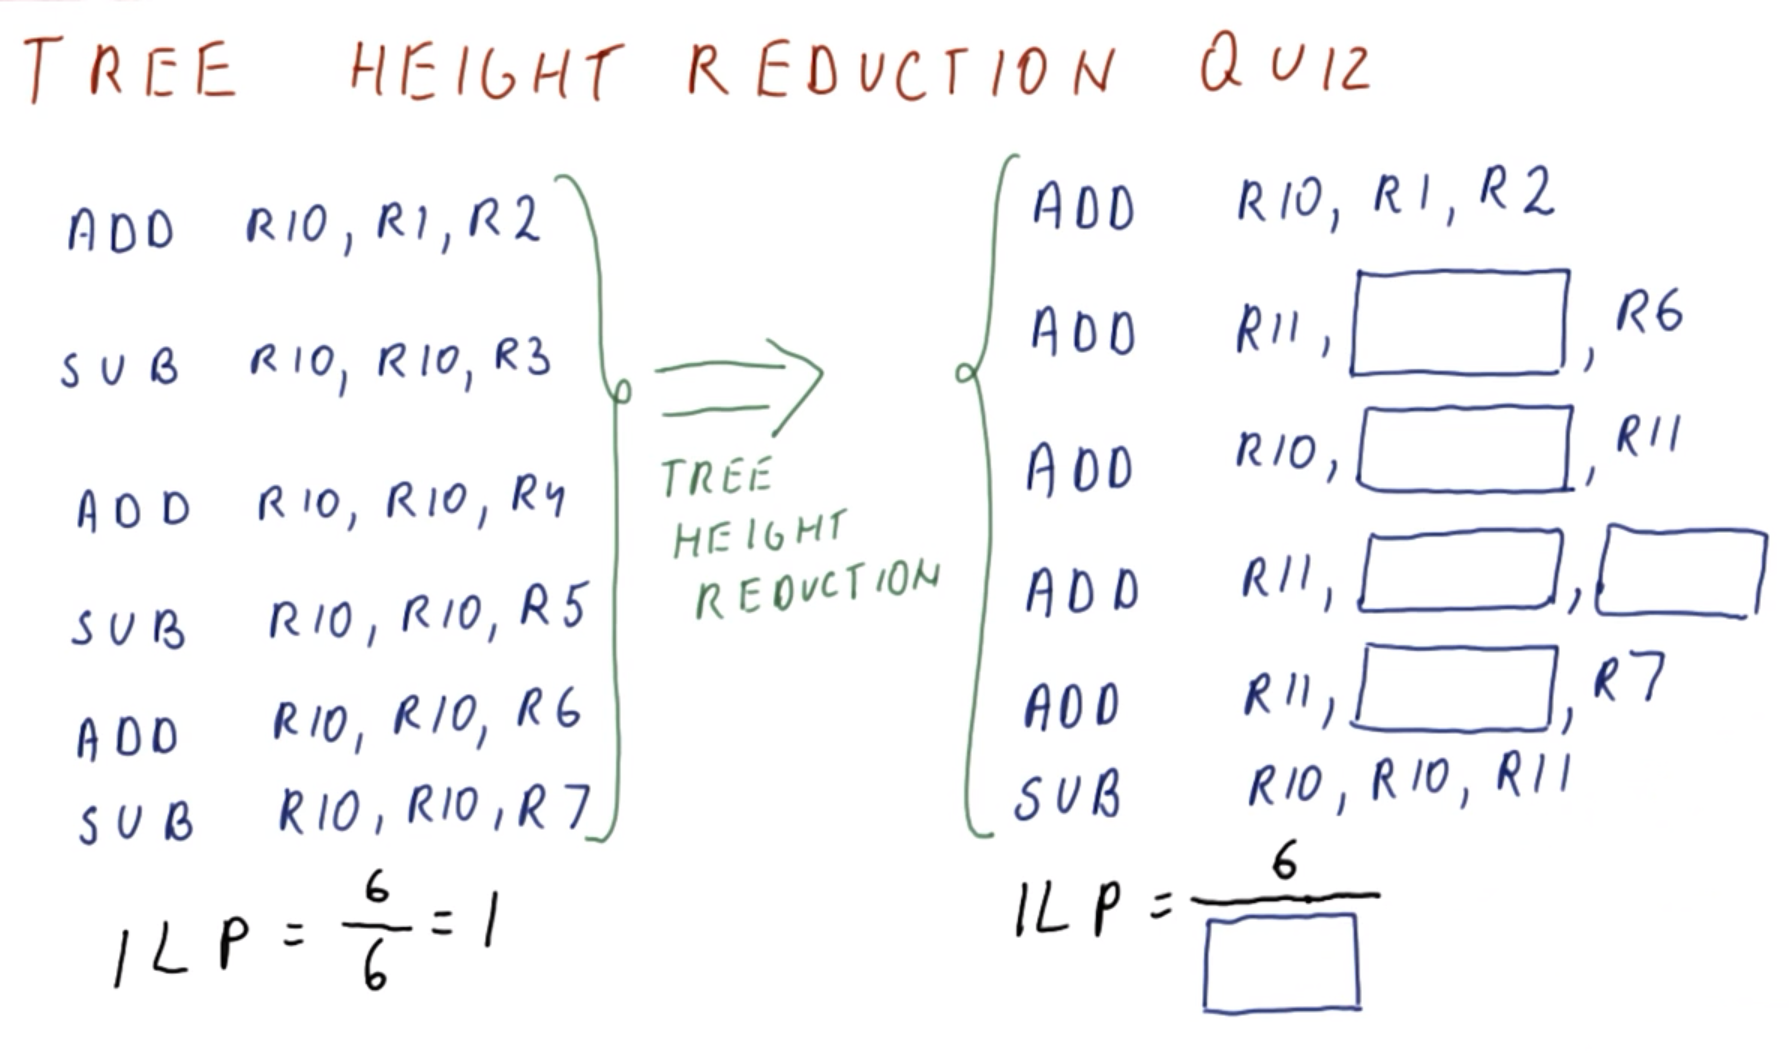 TREE HEIGHT REDUCTION QUIZ
ADD R10, R1, R2
SUB R10, R10, R3
ADD R10, R10, R4
SUB R10, R10, R5
ADD R10, R10, R6
SUB R10, R10, R7
ILP = 6/6 = 1
TREE
HEIGHT
REDUCTION
ADD R10, R1, R2
ADD R11, , R6
ADD R10, , R11
ADD R11, ,
ADD R11, , R7
SUB R10, R10, R11
ILP = 6/